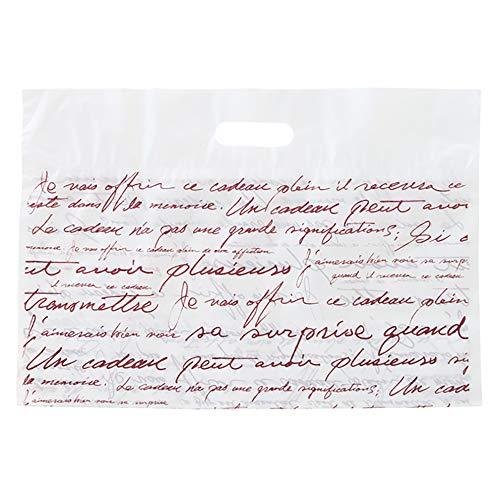 Je vais offrir ce cadeau plein il recevra ce
reste dans la memoire. Un cadeau peut avoi
La cadeau n'a pas une grande significations; Si c
Je vais offrir ce cadeau plein de mon affection
J'aimerais bien voir sa surpr
ut avoir plusieurs
quand il recevra ce cadeau
il recevra ce cadeau
transmettre Je vais offrir ce cadeau plein
J'aimerais bien voir sa surprise quand
Un cadeau peut avoir plusieurs si
la memoire. La cadeau n'a pas une grande significations; Un cad
J'aimerais bien voir sa surprise